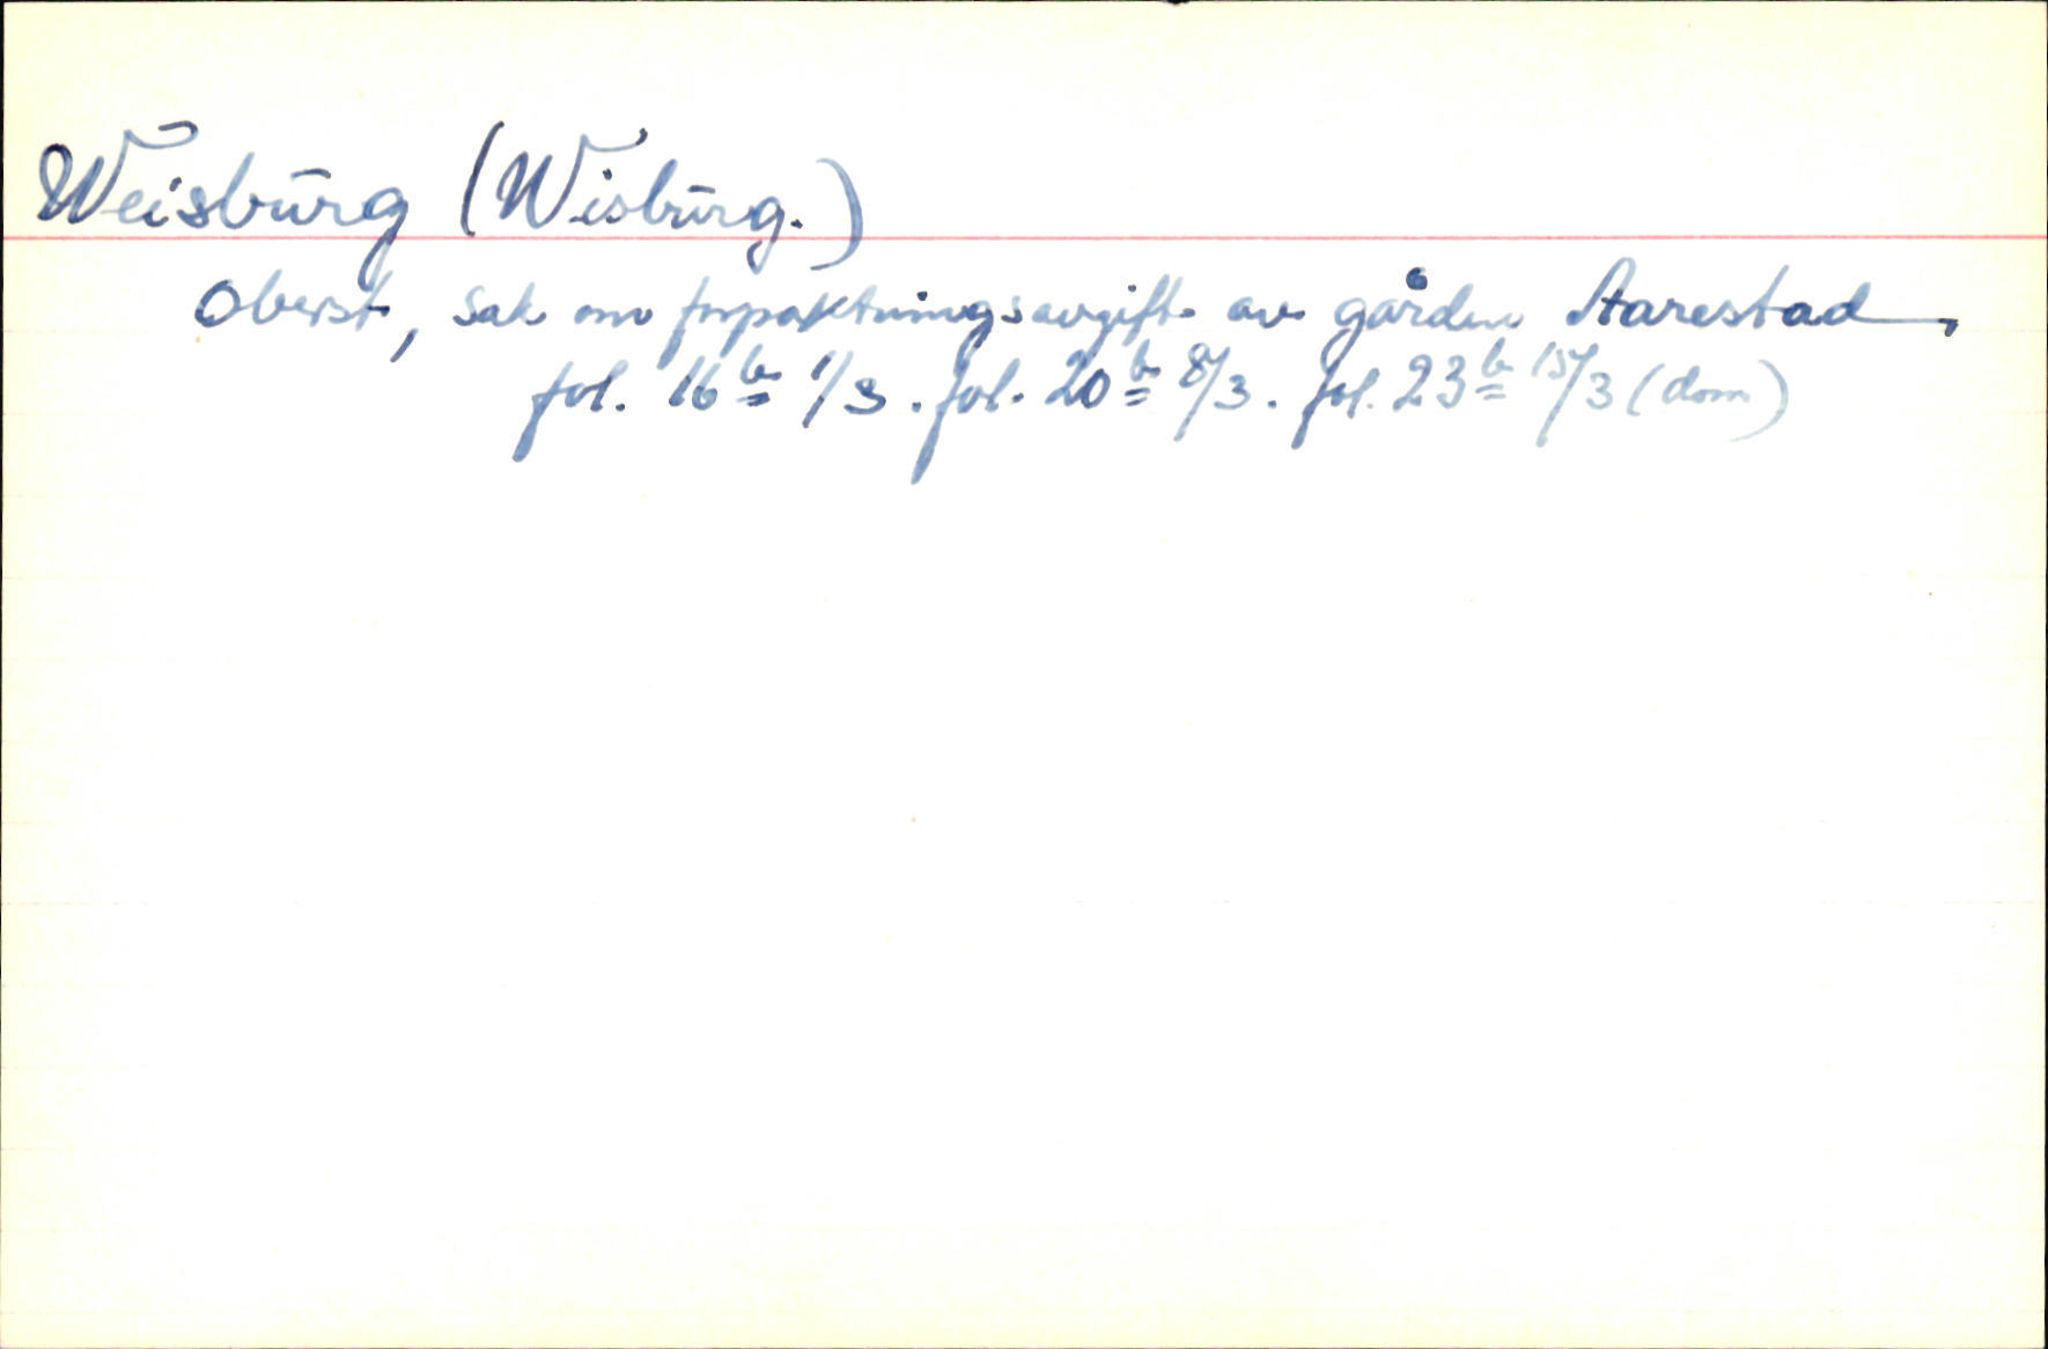 Weisburg (Wisburg.)
Oberst, sak om forpaktningsavgift av gården Aarestad,
fol. 16b 1/3. fol. 20b 8/3. fol. 23b 15/3 (dom)